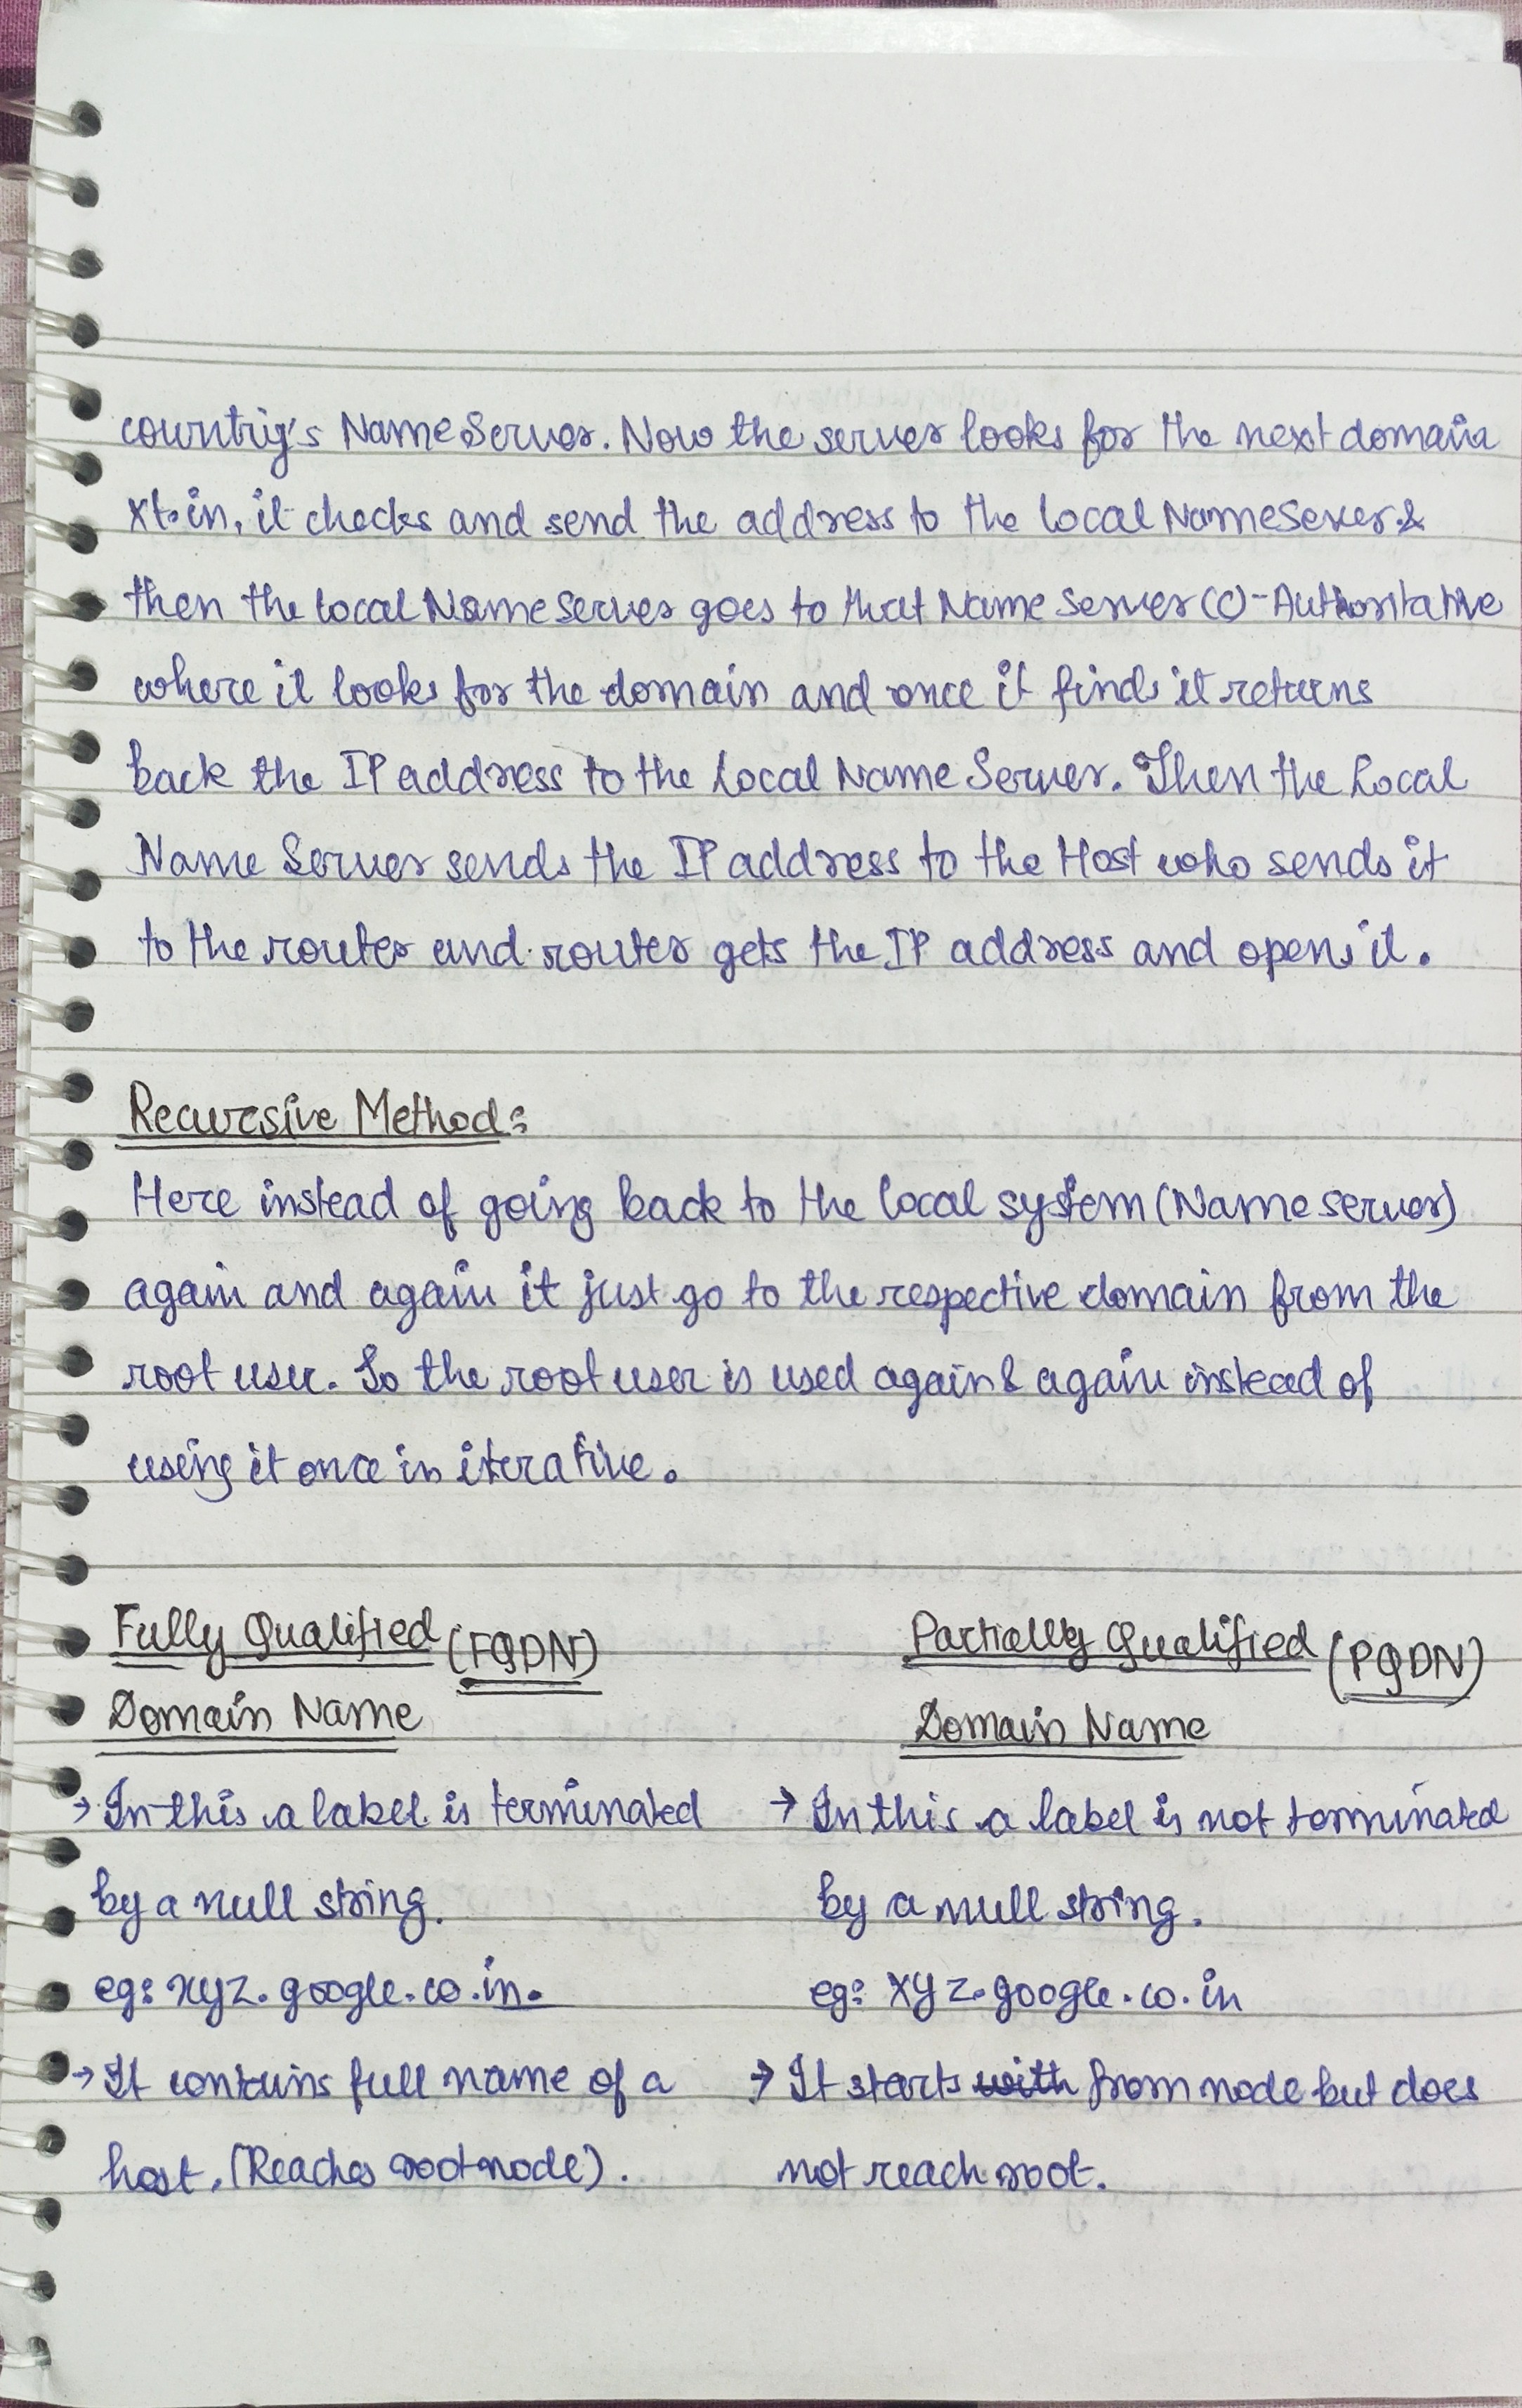 country's NameServer. Now the server looks for the next domain
xt.in, it checks and send the address to the local NameSever &
then the local Nameserver goes to that Name Server (C)-Authoritative
where it looks for the domain and once it finds it returns
back the IP address to the Local Name Server. Then the Local
Name Server sends the IP address to the Host who sends it
to the router and router gets the IP address and opens it.
Recursive Method:
Here instead of going back to the local system (Name server)
again and again it just go to the respective domain from the
root user. So the root user is used again & again instead of
using it once in iterative.
Fully Qualified (FQDN)
Domain Name
→ In this a label is terminated
by a null string.
eg: xyz.google.co.in.
→ It contains full name of a
host. (Reaches root node).
Partially Qualified (PQDN)
Domain Name
→ In this a label is not terminated
by a null string.
eg: xyz.google.co.in
→ It starts with from node but does
not reach root.